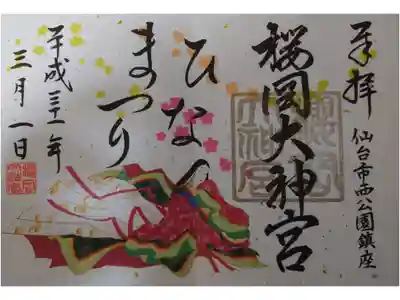 奉拝
仙台市西公園鎮座
桜岡大神宮
ひなの
まつり
平成三十一年
三月一日